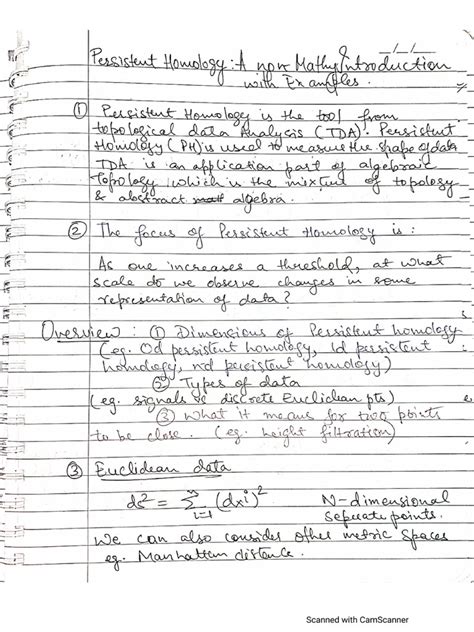 Persistent Homology: A non Mathy Introduction
with Examples.
① Persistent Homology is the tool from
topological data Analysis (TDA). Persistent
Homology (PH) is used to measure the shape of data
TDA is an application part of algebraic
topology, which is the mixture of topology
& abstract algebra.
② The focus of Persistent Homology is :
As one increases a threshold, at what
scale do we observe changes in some
representation of data?
Overview : ① Dimensions of Persistent homology
(eg. 0d persistent homology, 1d persistent
homology, nd persistent homology)
② Types of data
(eg. signals & discrete Euclidean pts)
③ What it means for two points
to be close. (eg. height filtration)
③ Euclidean data
ds² = Σⁿᵢ₌₁ (dxⁱ)² N-dimensional
seperate points.
We can also consider other metric spaces
eg. Manhattan distance.
Scanned with CamScanner